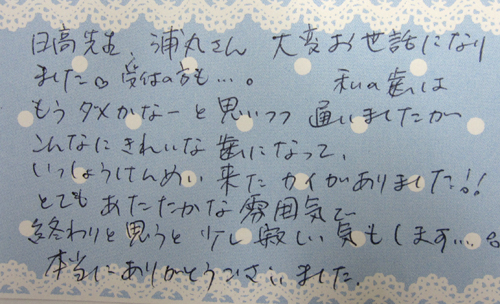 日高先生、浦丸さん 大変お世話になり
ました。受付の方も…。 私の歯は
もうダメかなーと思いつつ通いましたが
こんなにきれいな歯になって、
いっしょうけんめい来たカイがありました!!
とてもあたたかな雰囲気で
終わりと思うと少し寂しい気もします…。
本当にありがとうございました。